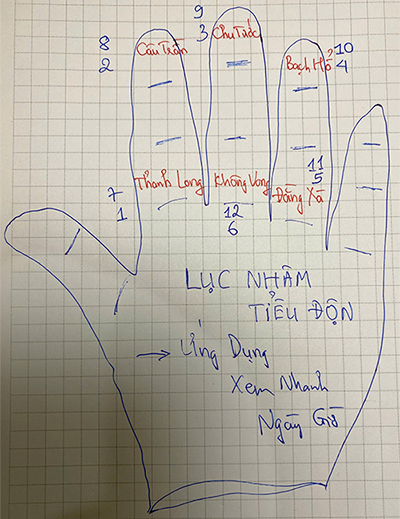 9
8
3
10
2
4
Câu Trần
Chu Tước
Bạch Hổ
Thanh Long
Không Vong
Đằng Xà
7
1
12
6
11
5
LỤC NHÂM
TIỂU ĐỘN
→ Ứng Dụng
Xem Nhanh
Ngày Giờ